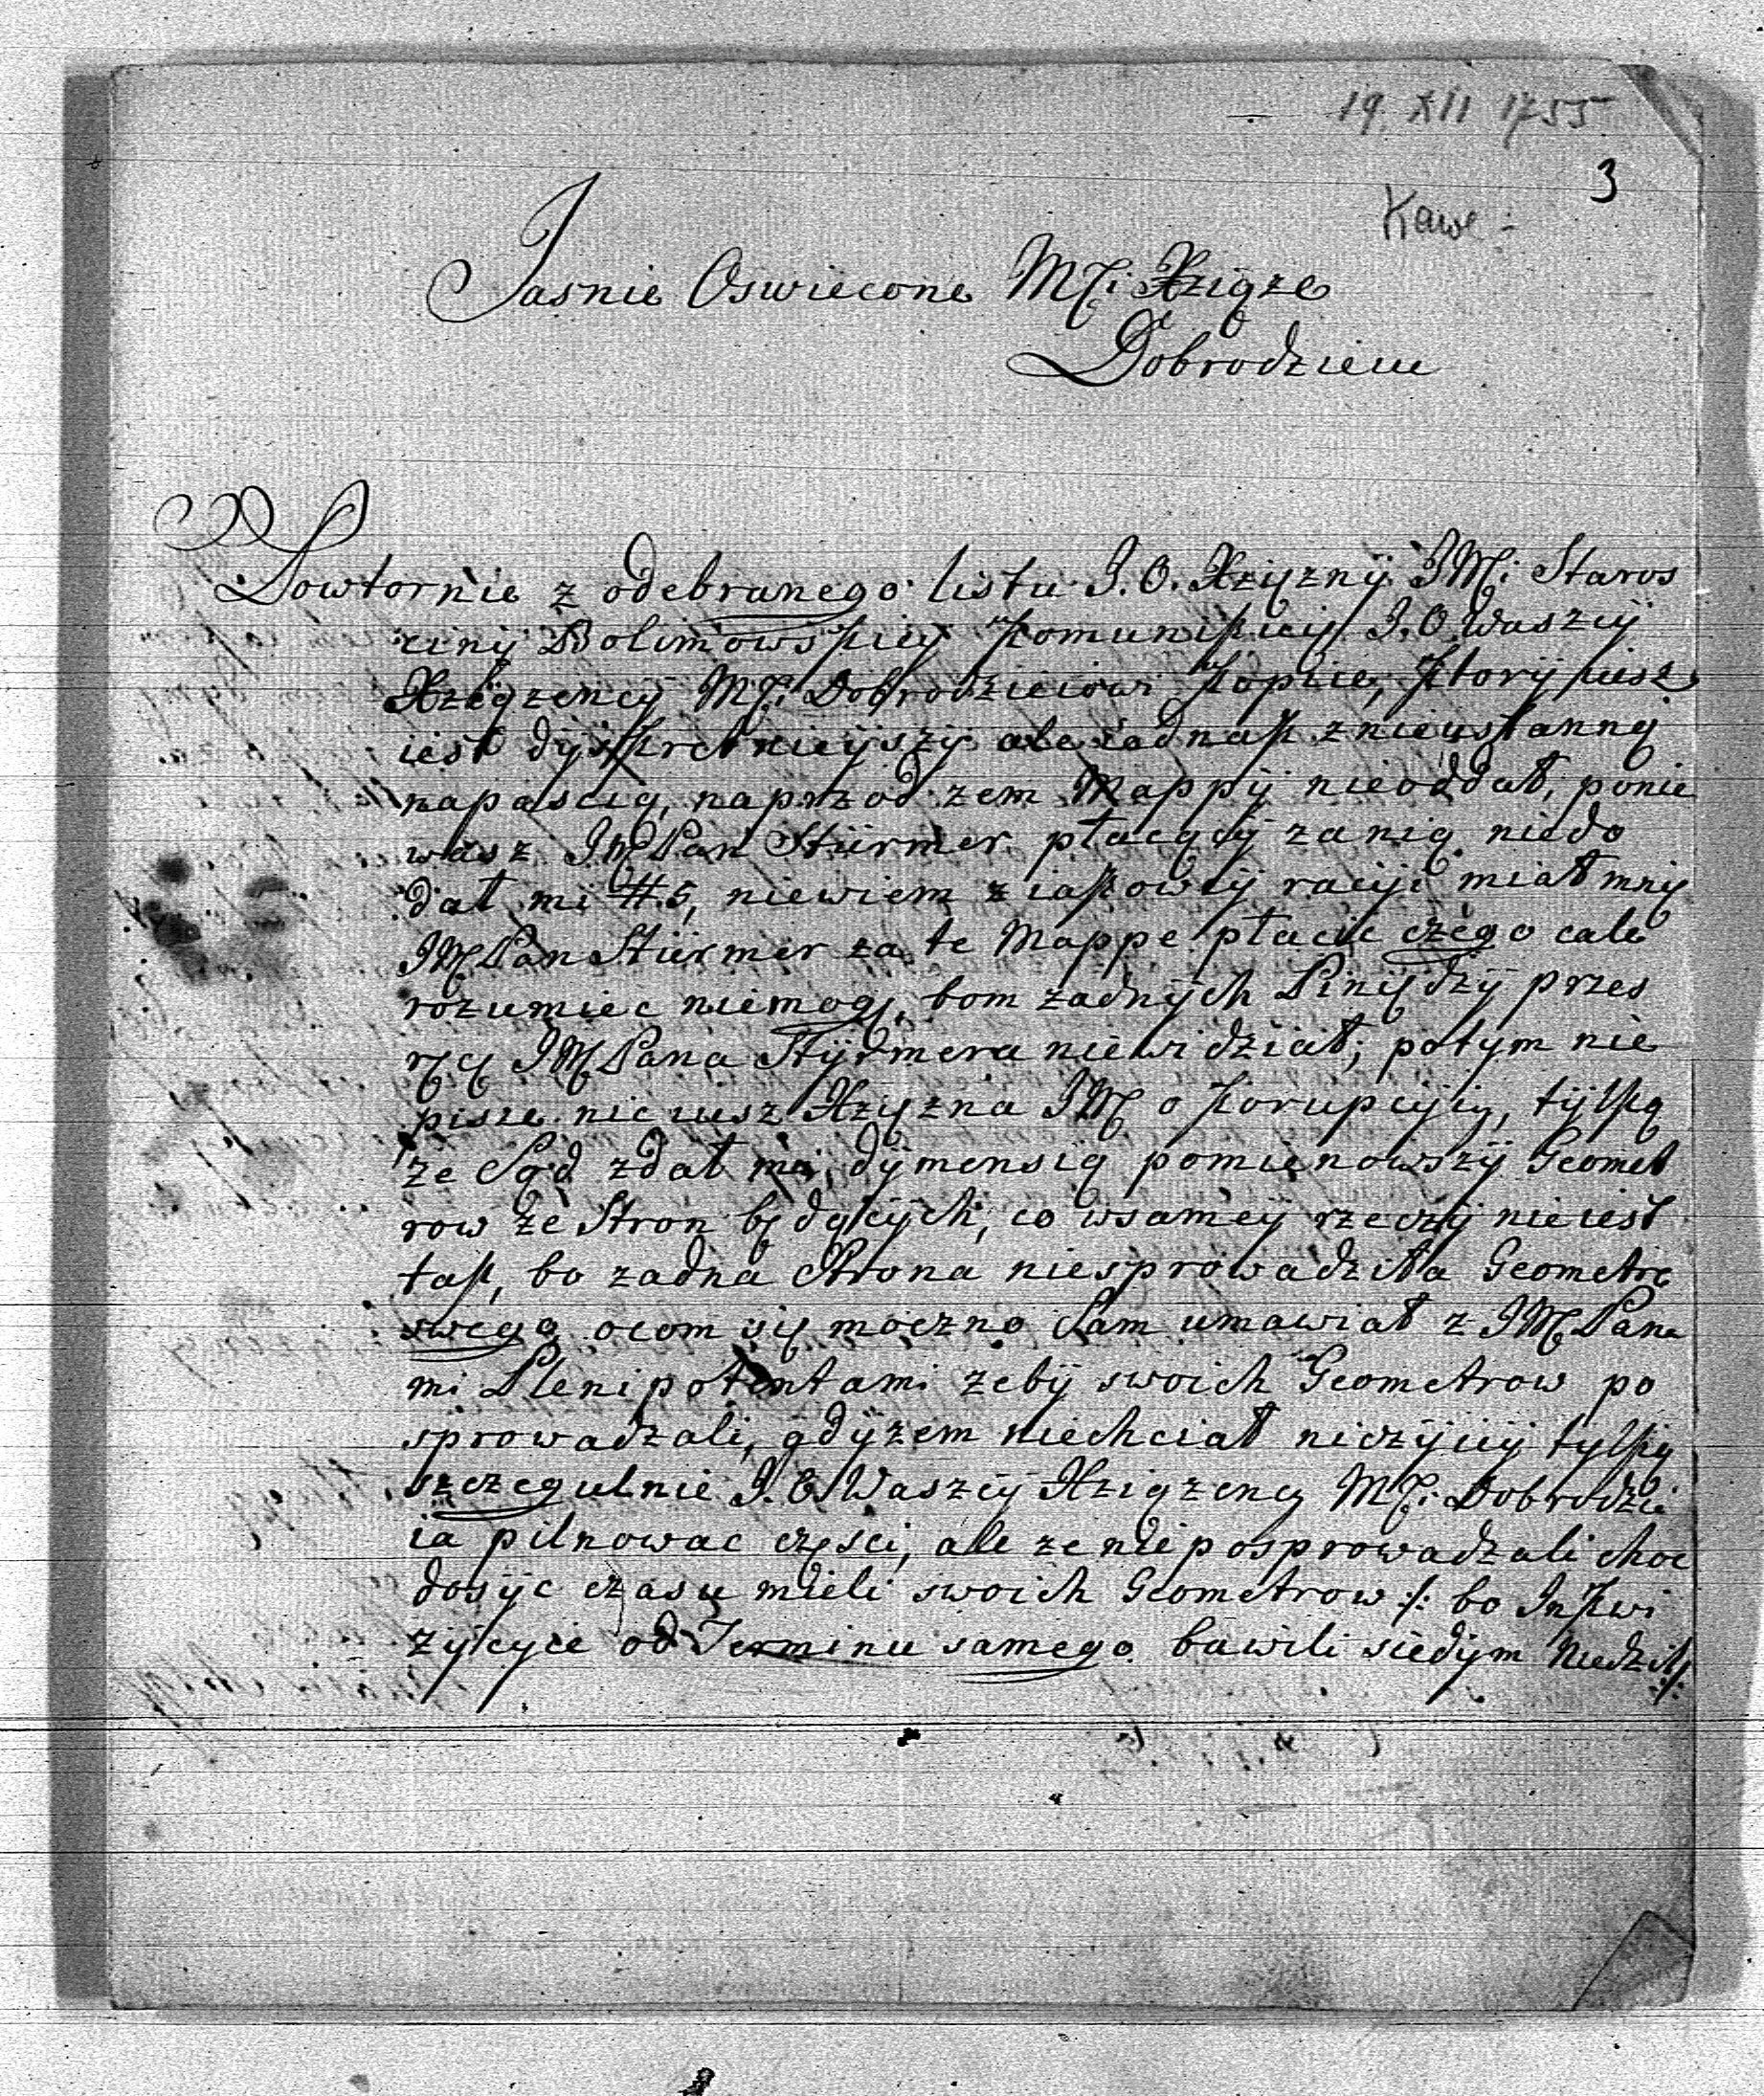 19. XII 1755
3
Kawe:
Jasnie Oswiecone Mći Xżiąże
Dobrodzieiu
Powtornie z odebranego listu J.O. Xżęzny JMći Staros
ciny Bolimowskiey komunikuię J.O. Waszey
Xżiązency Mći Dobrodzieiowi kopie, ktory iusz
iest dyskretnieyszy ale iednak z nieustanną
napascią, naprzod zem Mappy nieoddał, ponie
wasz JMć Pan Stürmer płacący za nią niedo
dał mi # 5, niewiem z iakowey racyi miał mnie
JMć Pan Stürmer za te Mappe płacic czego cale
rozumiec niemogę, bom zadnych Piniędzy przes
ręcę JMć Pana Styrmera niewidział; potym nie
pisze nic iusz Xżęzna JMć o korupcyią, tylko
że Sąd zdał mi dymensią pomienowszy Geomet
row ze Stron będących, co wsamey rzeczy nieiest
tak, bo zadna Strona niesprowadziła Geometre
swego ocom się moczno Sam umawiał z JMć Pana
mi Plenipotentami zeby swoich Geometrow po
sprowadzali, gdyzem niechciał niczyiey tylko
szczegulnie J.O. Waszey Xżiązency Mći Dobrodzie
ia pilnowac częsci, ale ze nieposprowadzali choc
dosyc czasu mieli swoich Geometrow /: bo Inkwi
zycyie od Terminu samego bawili siedym Niedziel :/